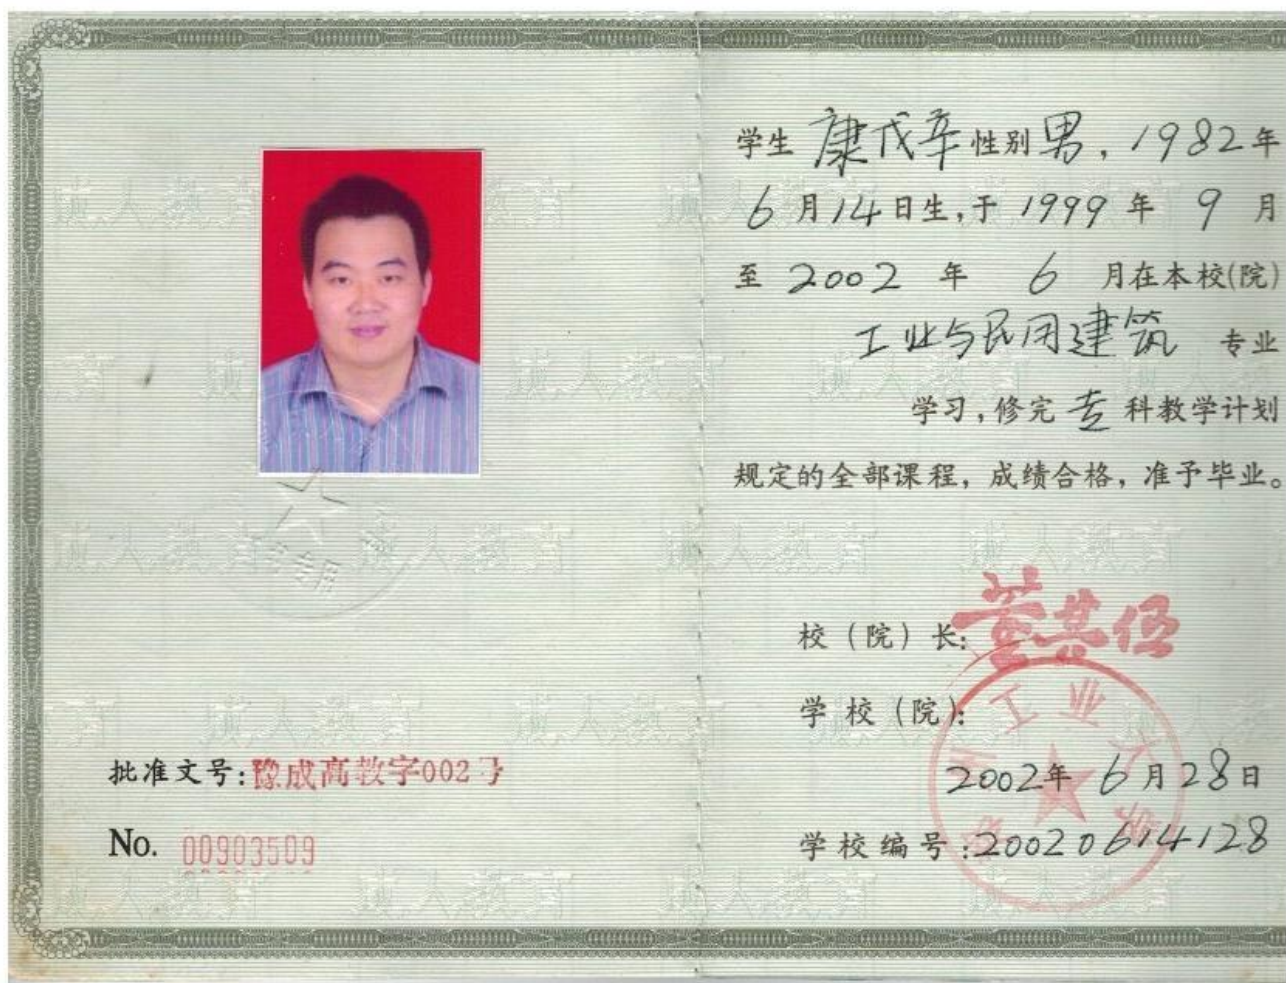 批准文号:豫成高教字002号
No. 00903509
学生 康戊辛 性别 男, 1982年
6 月 14 日生,于 1999 年 9 月
至 2002 年 6 月在本校(院)
工业与民用建筑 专业
学习,修完 专 科教学计划
规定的全部课程, 成绩合格, 准予毕业。
校 (院) 长: 董其伍
学 校 (院):
州工业大学
2002年 6月28日
学校编号:20020614128
成人教育